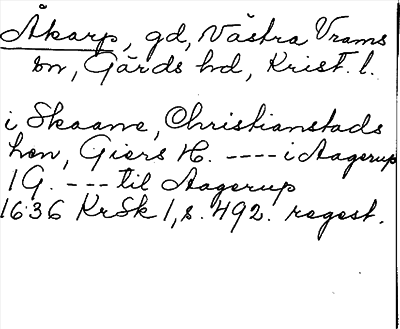 Åkarp, gd, Västra Vrams
sn, Gärds hd, Krist. l.
i Skaane, Christianstads
hen, Giers H. ---- i Aagerup
1 G. --- til Aagerup
1636 KrSk 1, s. 492. regest.